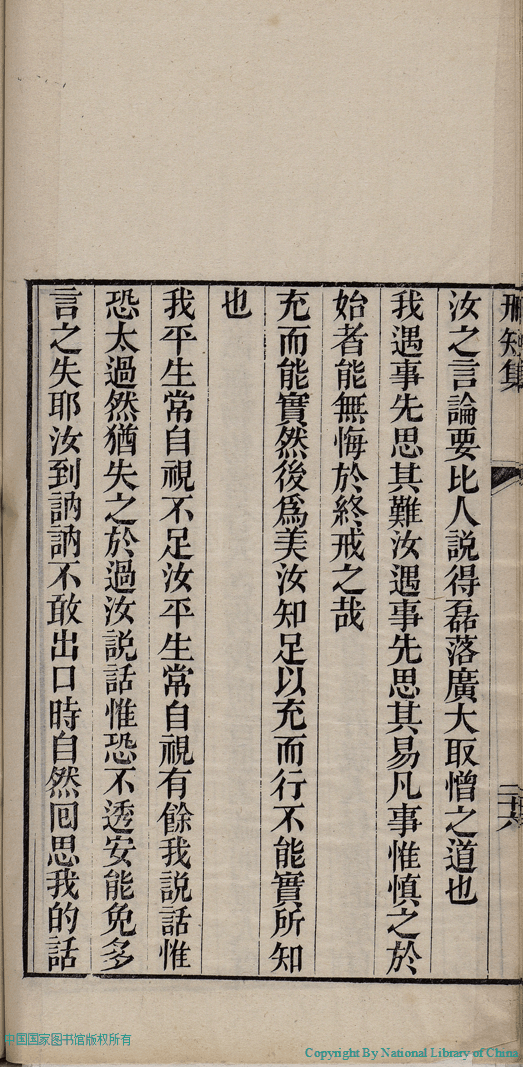 汝之言論要比人說得磊落廣大取憎之道也
我遇事先思其難汝遇事先思其易凡事惟慎之於
始者能無悔於終戒之哉
充而能實然後爲美汝知足以充而行不能實所知
也
我平生常自視不足汝平生常自視有餘我説話惟
恐太過然猶失之於過汝説話惟恐不透安能免多
言之失耶汝到訥訥不敢出口時自然囘思我的話
知集
二十六
中国国家图书馆版权所有
Copyright By National Library of China